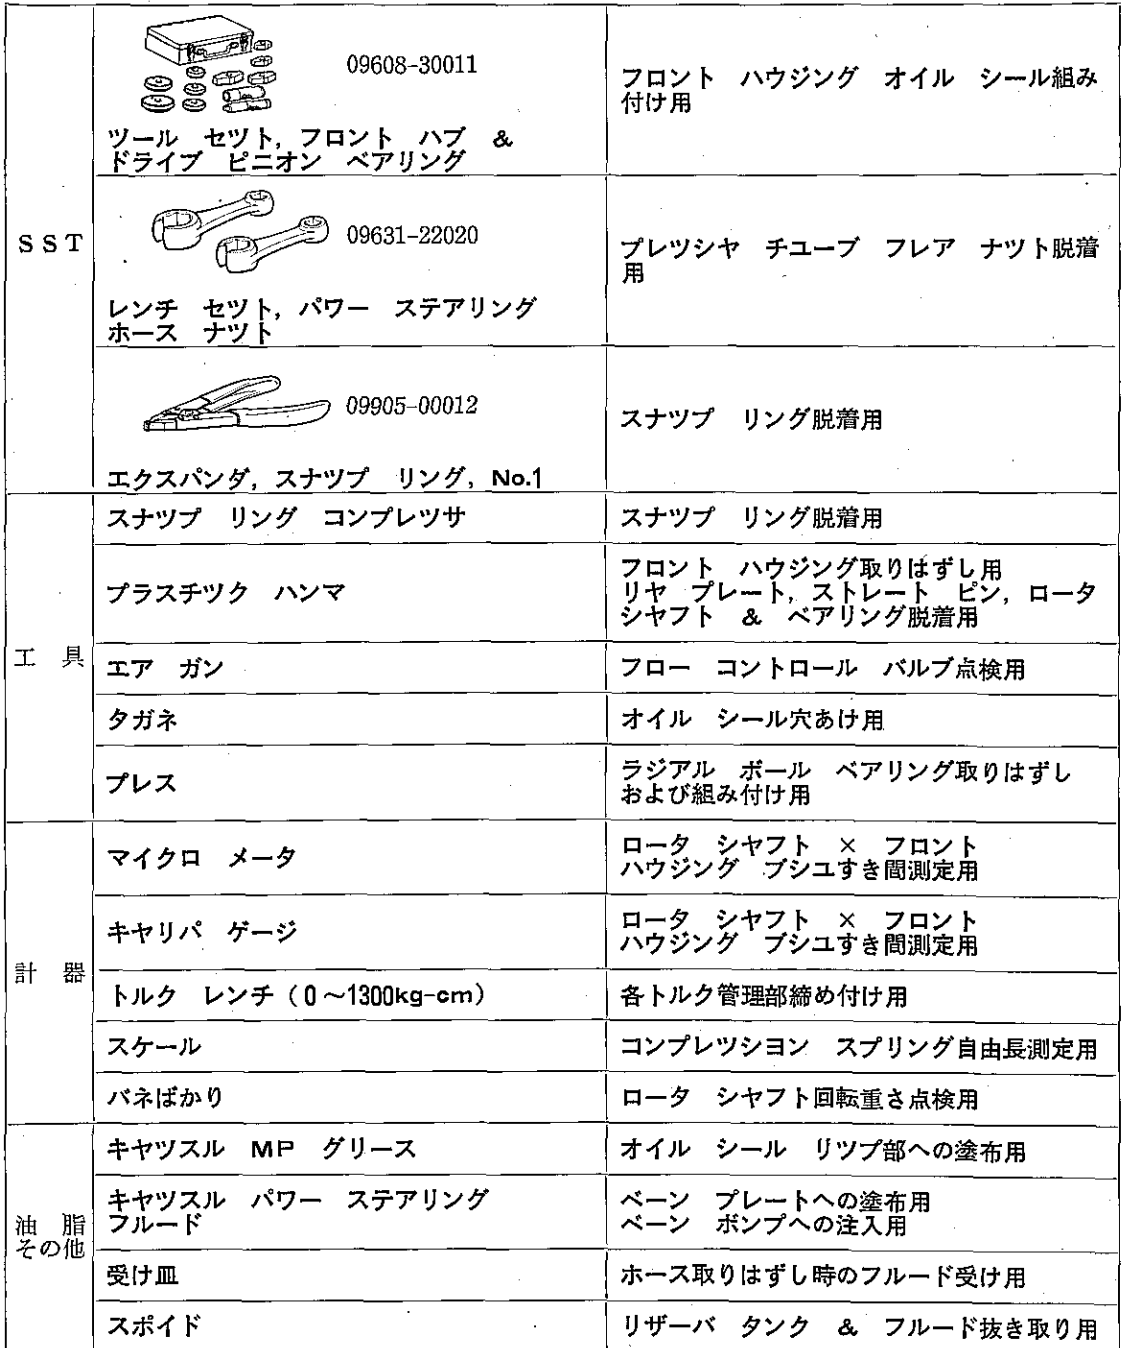 SST
09608-30011
ツール　セツト，フロント　ハブ　&
ドライブ　ピニオン　ベアリング
フロント　ハウジング　オイル　シール組み
付け用
09631-22020
レンチ　セツト，パワー　ステアリング
ホース　ナツト
プレツシヤ　チユーブ　フレア　ナツト脱着
用
09905-00012
エクスパンダ，スナツプ　リング，No.1
スナツプ　リング脱着用
工　具
スナツプ　リング　コンプレツサ
スナツプ　リング脱着用
プラスチツク　ハンマ
フロント　ハウジング取りはずし用
リヤ　プレート，ストレート　ピン，ロータ
シヤフト　&　ベアリング脱着用
エア　ガン
フロー　コントロール　バルブ点検用
タガネ
オイル　シール穴あけ用
プレス
ラジアル　ボール　ベアリング取りはずし
および組み付け用
計　器
マイクロ　メータ
ロータ　シヤフト　×　フロント
ハウジング　ブシユすき間測定用
キヤリパ　ゲージ
ロータ　シヤフト　×　フロント
ハウジング　ブシユすき間測定用
トルク　レンチ（0～1300kg-cm）
各トルク管理部締め付け用
スケール
コンプレツシヨン　スプリング自由長測定用
バネばかり
ロータ　シヤフト回転重さ点検用
油　脂
その他
キヤツスル　MP　グリース
オイル　シール　リツプ部への塗布用
キヤツスル　パワー　ステアリング
フルード
ベーン　プレートへの塗布用
ベーン　ポンプへの注入用
受け皿
ホース取りはずし時のフルード受け用
スポイド
リザーバ　タンク　&　フルード抜き取り用